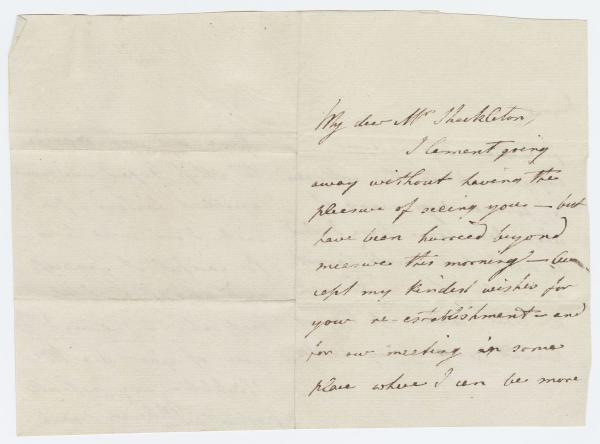 My dear Mr Shackleton,
I lament going
away without having the
pleasure of seeing you — but
have been hurried beyond
measure this morning — Ac
cept my kindest wishes for
your re-establishment — and
for our meeting in some
place where I can be more